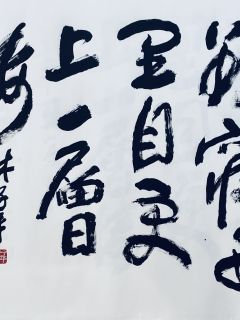 欲窮
里目更
上一層
樓